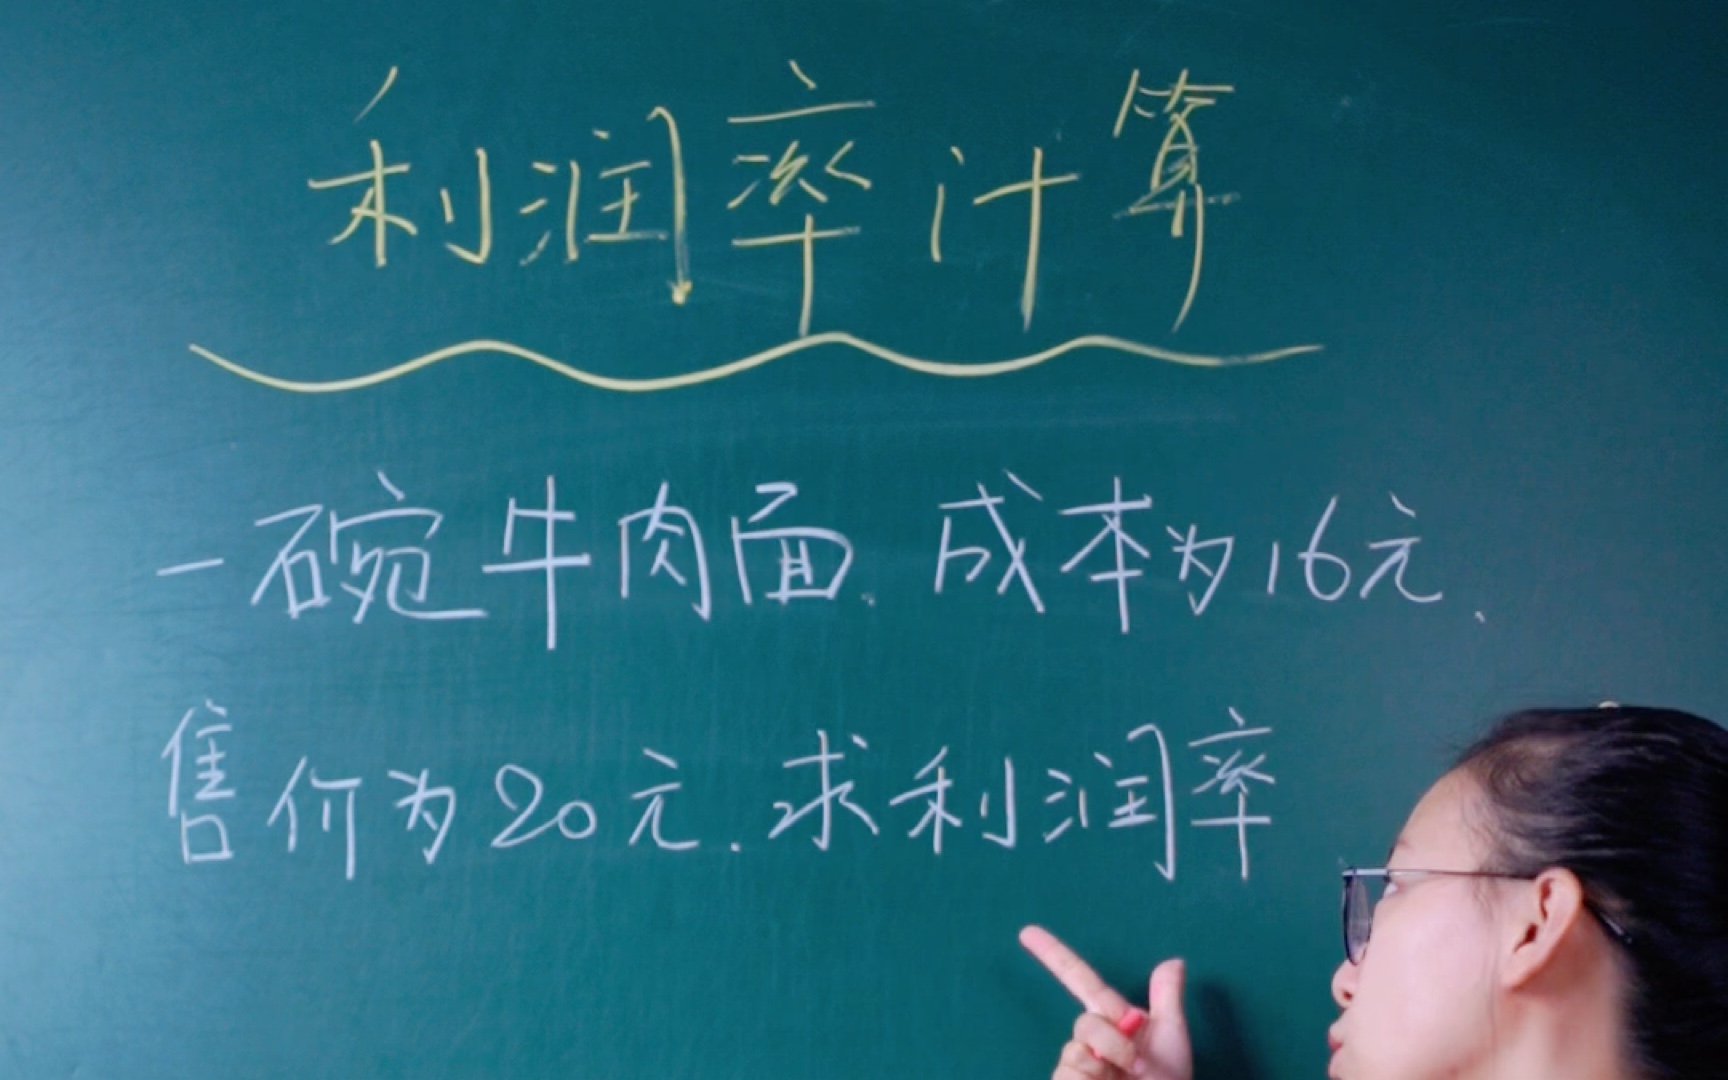 利润率计算
一碗牛肉面.成本为16元.
售价为20元.求利润率